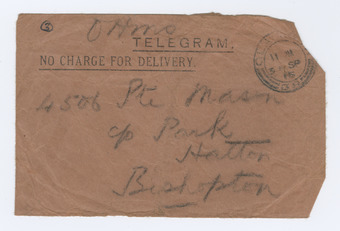 OHMS
TELEGRAM.
NO CHARGE FOR DELIVERY.
4506 Pte Mason
c/o Park
Hatton
Bishopton